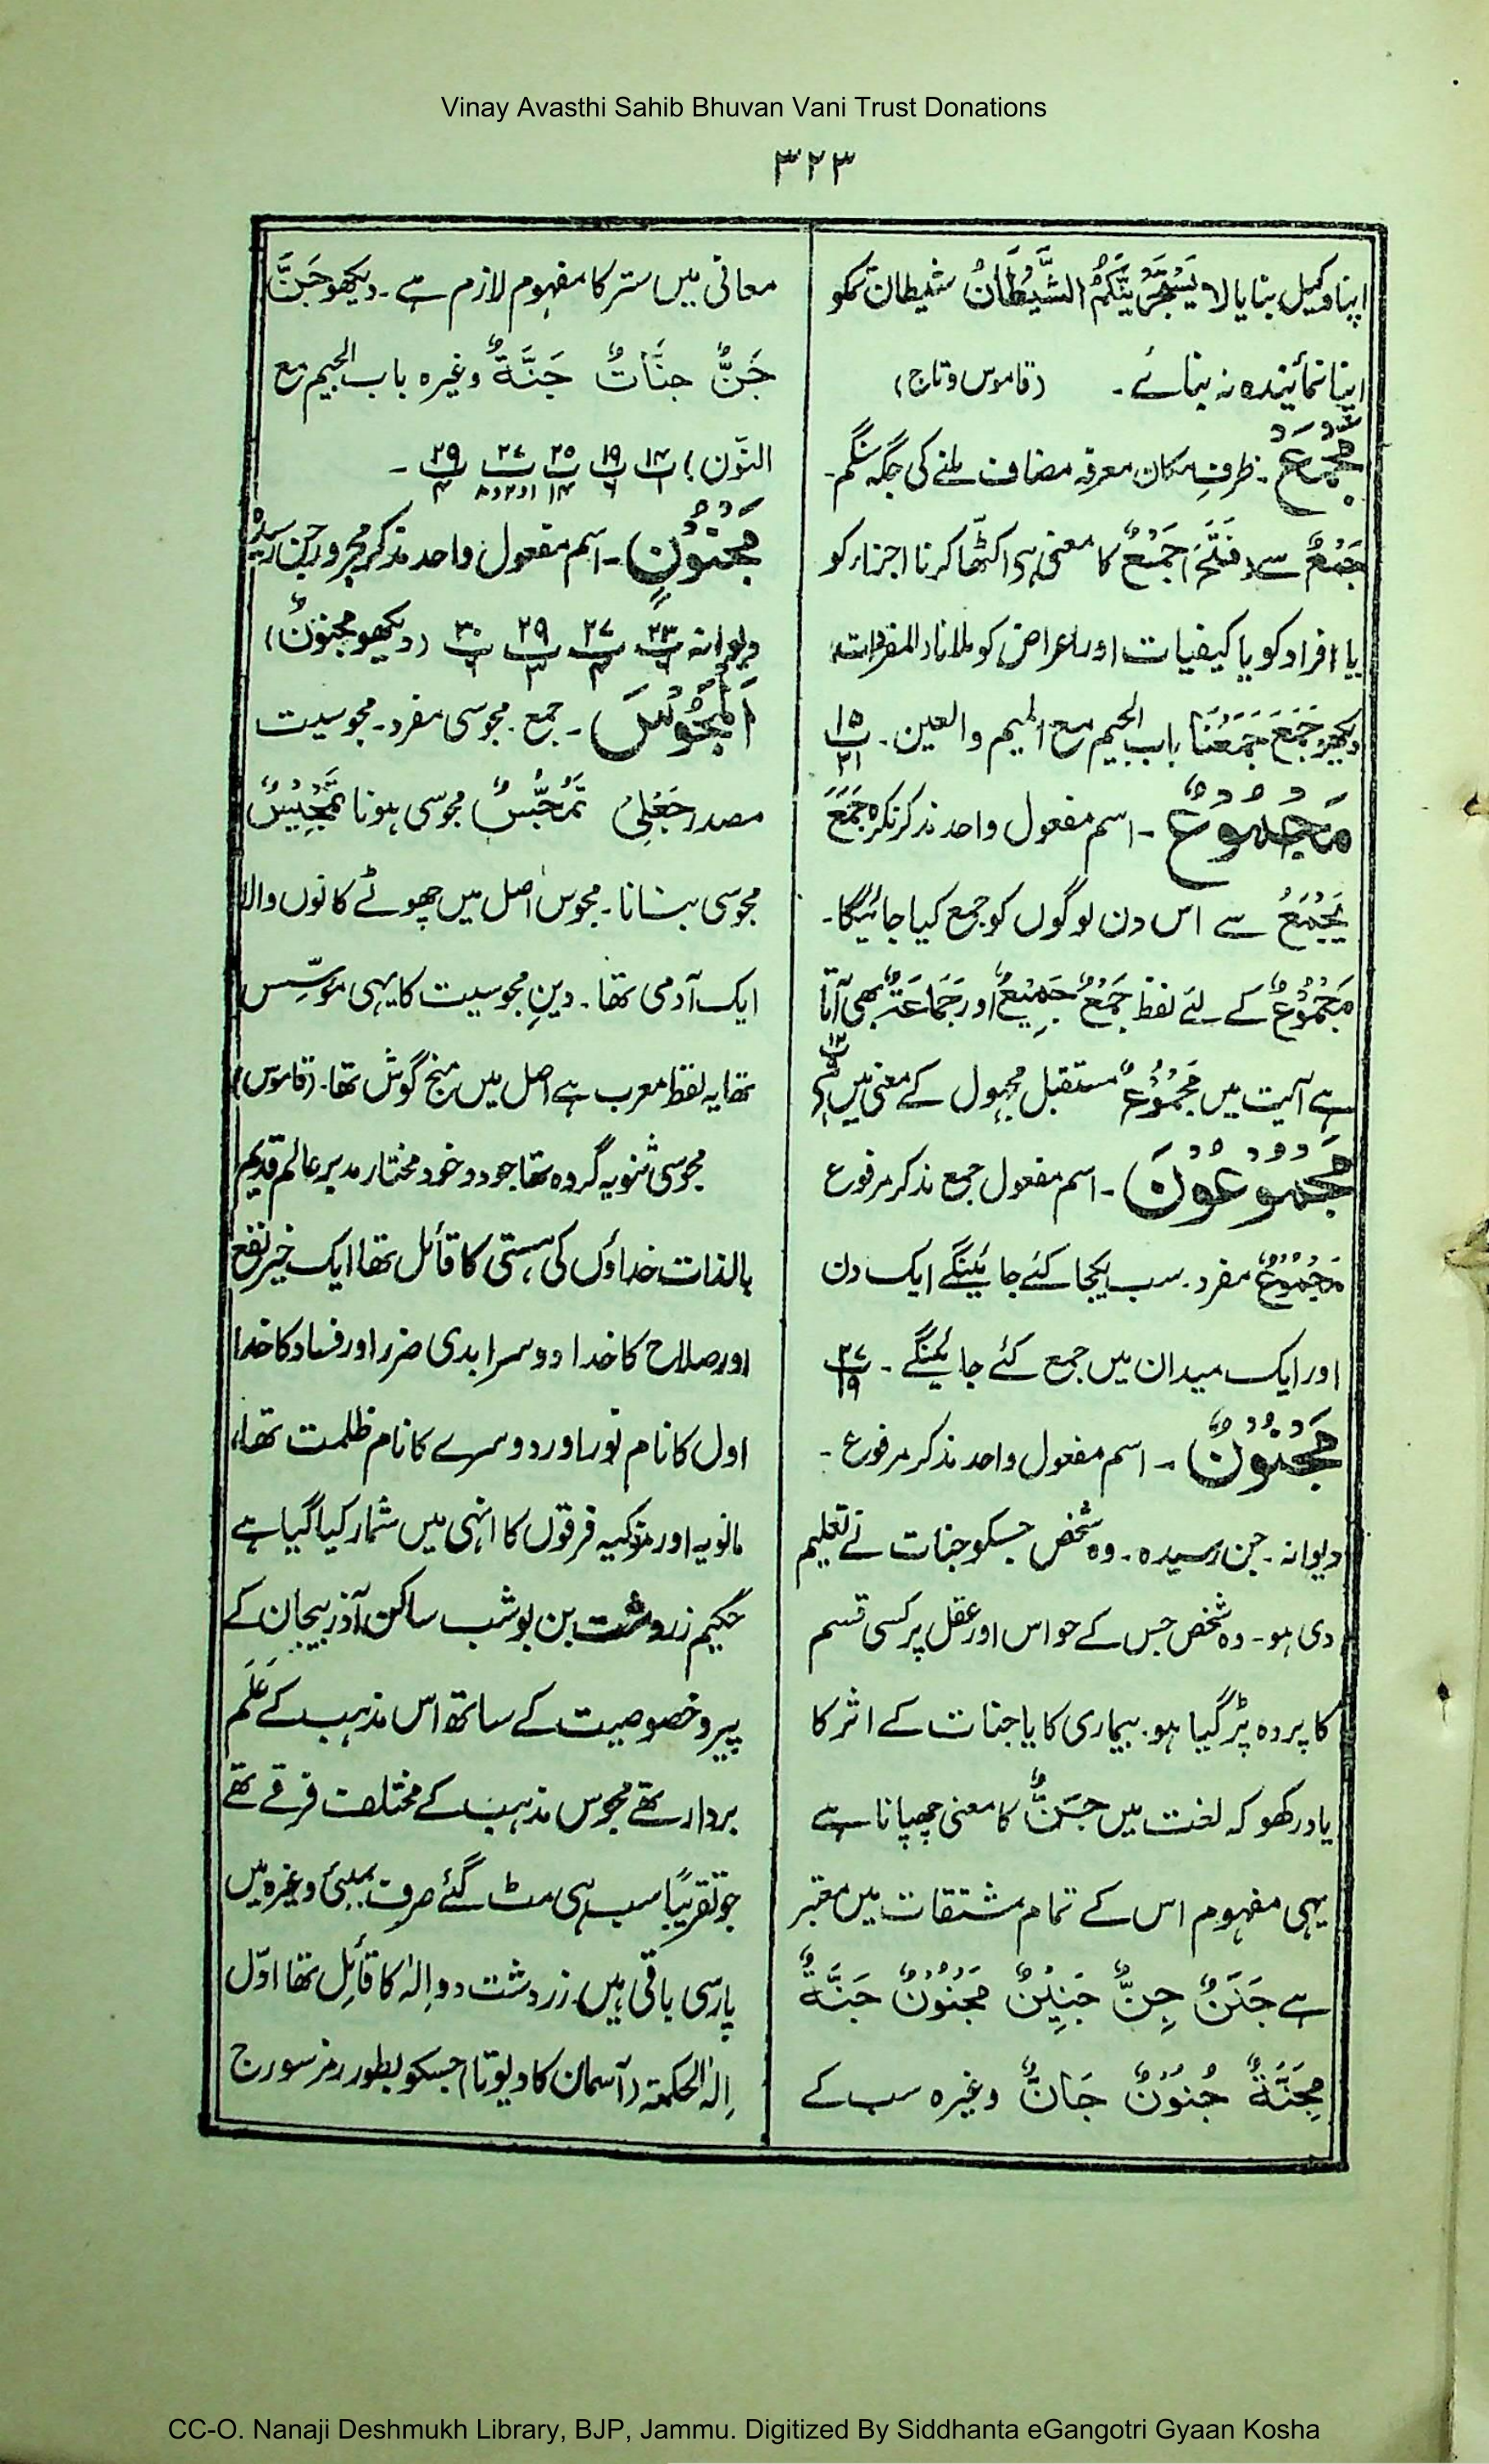 Vinay Avasthi Sahib Bhuvan Vani Trust Donations
۳۲۳
اپنا وکیل بنایا لا یَسْتَجْرِیَنَّکُمُ الشَّیْطَانُ شیطان تمکو
اپنا نمائیندہ نہ بنائے۔ (قاموس و تاج)
مَجْمَعَ۔ ظرفِ مکان معرفہ مضاف ملنے کی جگہ سنگم۔
جَمْعٌ سے (فَتَحَ) جَمْعٌ کا معنی ہے اکٹھا کرنا اجزار کو
یا افراد کو یا کیفیات اور اعراض کو ملانا (المفردات)
دیکھو جَمَعَ جَمَعْنَا باب الجیم مع المیم والعین۔ ۱۵ ۲۱
مَجْمُوعٌ۔ اسم مفعول واحد مذکر نکرہ جَمَعَ
یَجْمَعُ سے اس دن لوگوں کو جمع کیا جائیگا۔
مَجْمُوْعٌ کے لئے لفظ جَمْعٌ جَمِیْعٌ اور جَمَاعَۃٌ بھی آتا
ہے آیت میں مَجْمُوْعٌ مستقبل مجہول کے معنی میں ہے
مَجْمُوعُوْنَ۔ اسم مفعول جمع مذکر مرفوع
مَجْمُوْعٌ مفرد۔ سب یکجا کئے جائینگے ایک دن
اور ایک میدان میں جمع کئے جائینگے۔ ۲۷ ۱۹
مَجْنُوْنٌ۔ اسم مفعول واحد مذکر مرفوع۔
دیوانہ۔ جن رسیدہ۔ وہ شخص جسکو جنات نے تعلیم
دی ہو۔ وہ شخص جس کے حواس اور عقل پر کسی قسم
کا پردہ پڑ گیا ہو۔ بیماری کا یا جنات کے اثر کا
یاد رکھو کہ لغت میں جَنٌّ کا معنی چھپانا ہے
یہی مفہوم اس کے تمام مشتقات میں معتبر
ہے جَنَنٌ جِنٌّ جَنِیْنٌ مَجْنُوْنٌ جَنَّۃٌ
مِجَنَّۃٌ جُنُوْنٌ جَانٌّ وغیرہ سب کے
معانی میں ستر کا مفہوم لازم ہے۔ دیکھو جَنَّ
جَنٌّ جنَّاتٌ جَنَّۃٌ وغیرہ باب الجیم مع
النّون) ۱۴ ۱ ۱۹ ۶ ۲۵ ۱۴ ۲۷ ۱ و ۲ و ۸ ۲۹ ۴۔
مَجْنُوْنٍ۔ اسم مفعول واحد مذکر مجرور جن رسیدہ
دیوانہ ۲۳ ۶ ۲۷ ۳ ۲۹ ۳ ۳۰ ۶ (دیکھو مجنونٌ)
اَلْمَجُوْسَ۔ جمع۔ مجوسی مفرد۔ مجوسیت
مصدر جَعْلِی تَمَجُّسٌ مجوسی ہونا تَمْجِیْسٌ
مجوسی بنانا۔ مجوس اصل میں چھوٹے کانوں والا
ایک آدمی تھا۔ دینِ مجوسیت کا یہی مؤسِّس
تھا یہ لفظ معرب ہے اصل میں منج گوش تھا۔ (قاموس)
مجوسی ثنویہ گروہ تھا جو دو خود مختار مدبر عالم قدیم
بالذات خداؤں کی ہستی کا قائل تھا ایک خیر نفع
اور صلاح کا خدا دوسرا بدی ضرر اور فساد کا خدا
اول کا نام نور اور دوسرے کا نام ظلمت تھا،
مانویہ اور مزدکیہ فرقوں کا انہی میں شمار کیا گیا ہے
حکیم زردشت بن بوشب ساکن آذر بیجان کے
پیرو خصوصیت کے ساتھ اس مذہب کے عَلَم
بردار تھے مجوس مذہب کے مختلف فرقے تھے
جو تقریبًا سب ہی مٹ گئے صرف بمبئی وغیرہ میں
پارسی باقی ہیں۔ زردشت دو اِلٰہ کا قائل تھا اوّل
اِلٰہ الحکمۃ (آسمان کا دیوتا) جسکو بطور رمز سورج
CC-O. Nanaji Deshmukh Library, BJP, Jammu. Digitized By Siddhanta eGangotri Gyaan Kosha